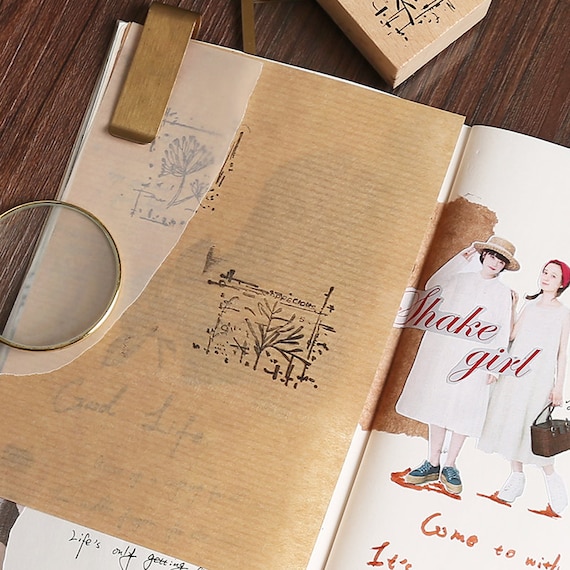 Good Life
Life's only getting
Shake
girl
Come to with
It's